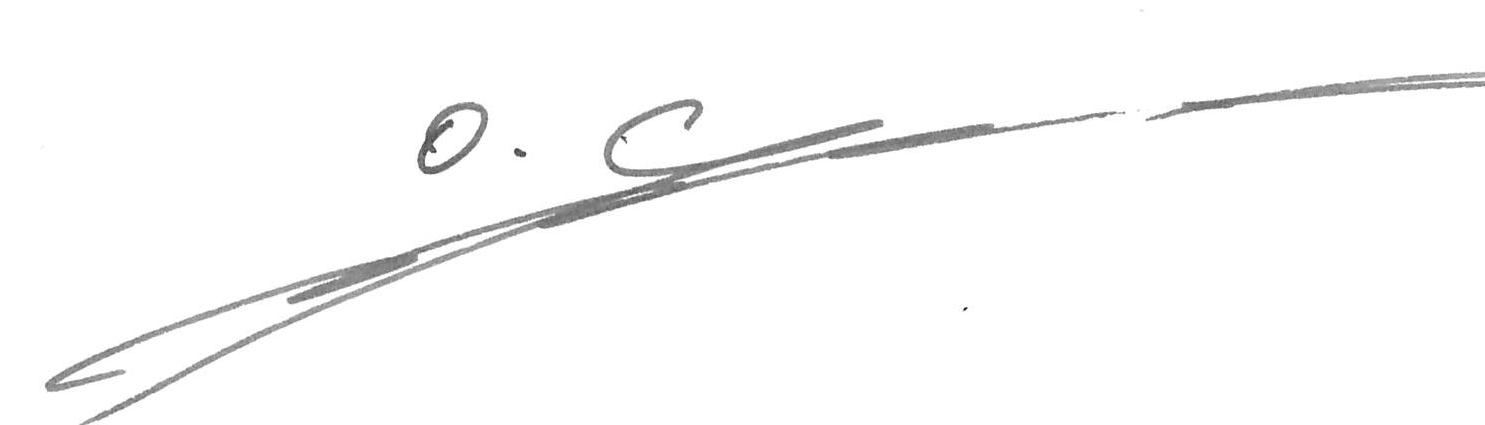 O. C